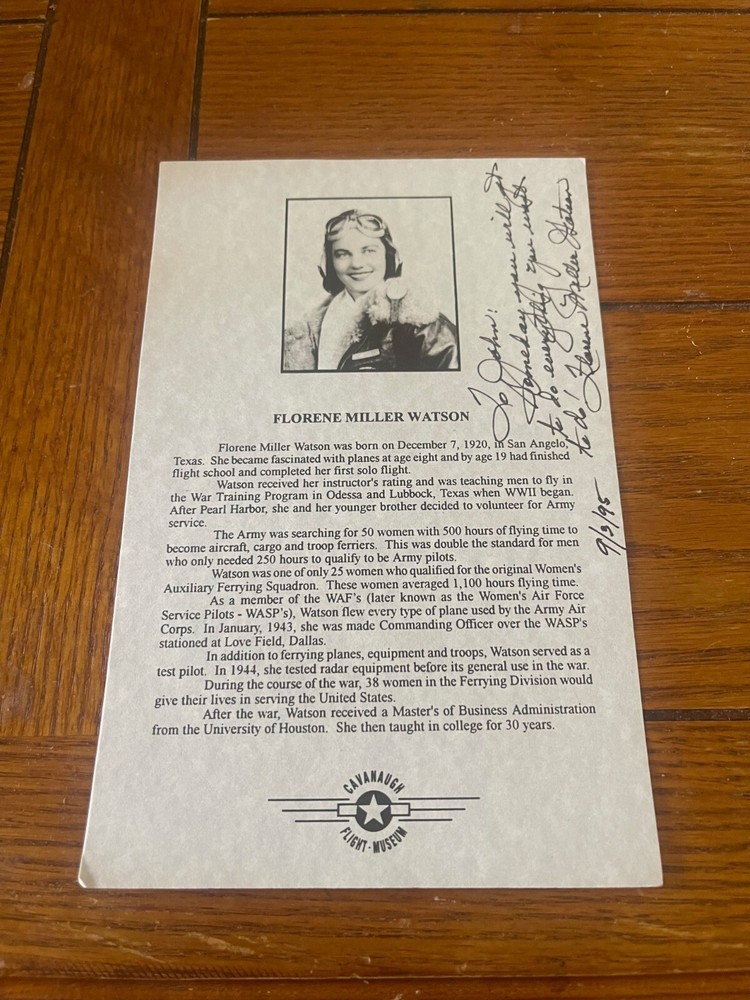 To John:
Someday you will get
to do everything you want
to do!
Florene Miller Watson
9/3/95
FLORENE MILLER WATSON
Florene Miller Watson was born on December 7, 1920, in San Angelo,
Texas. She became fascinated with planes at age eight and by age 19 had finished
flight school and completed her first solo flight.
Watson received her instructor's rating and was teaching men to fly in
the War Training Program in Odessa and Lubbock, Texas when WWII began.
After Pearl Harbor, she and her younger brother decided to volunteer for Army
service.
The Army was searching for 50 women with 500 hours of flying time to
become aircraft, cargo and troop ferriers. This was double the standard for men
who only needed 250 hours to qualify to be Army pilots.
Watson was one of only 25 women who qualified for the original Women's
Auxiliary Ferrying Squadron. These women averaged 1,100 hours flying time.
As a member of the WAF's (later known as the Women's Air Force
Service Pilots - WASP's), Watson flew every type of plane used by the Army Air
Corps. In January, 1943, she was made Commanding Officer over the WASP's
stationed at Love Field, Dallas.
In addition to ferrying planes, equipment and troops, Watson served as a
test pilot. In 1944, she tested radar equipment before its general use in the war.
During the course of the war, 38 women in the Ferrying Division would
give their lives in serving the United States.
After the war, Watson received a Master's of Business Administration
from the University of Houston. She then taught in college for 30 years.
CAVANAUGH
FLIGHT · MUSEUM